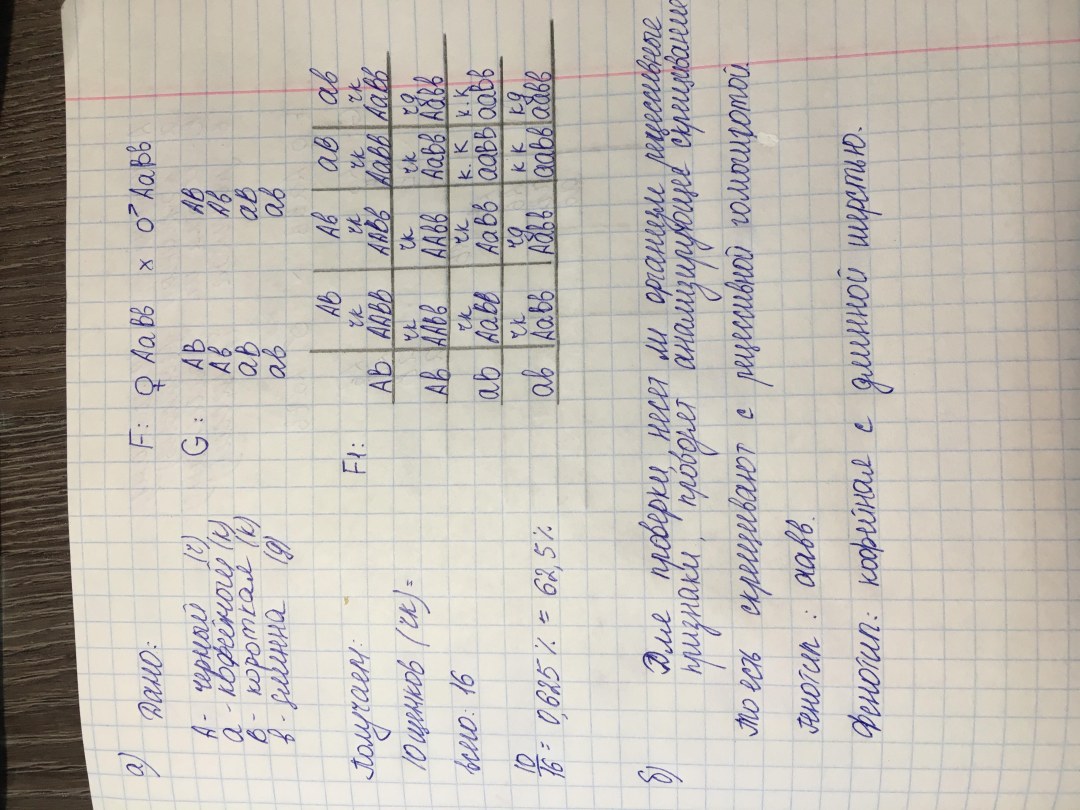 а) Дано:
А - черный (ч)
а - кофейный (к)
В - короткая (к)
в - длинна (д)
F: ♀ АаВв х ♂ АаВв
G: АВ АВ
Ав Ав
аВ аВ
ав ав
F1:
АВ Ав аВ ав
АВ чк ААВВ чк ААВв чк АаВВ чк АаВв
Ав чк ААВв чк ААВв чк АаВв чд Аавв
аВ чк АаВВ чк АаВв к.к ааВВ к.к ааВв
ав чк АаВв чд Аавв кк ааВв кд аавв
Получаем:
10 щенков (чк) =
всего: 16
10/16 = 0,625 % = 62,5 %
б) Для проверки, несёт ли организм рецессивные
признаки, проводят анализирующее скрещивание
То есть скрещивают с рецессивной гомозиготой.
Генотип: аавв.
Фенотип: кофейная с длинной шертью.